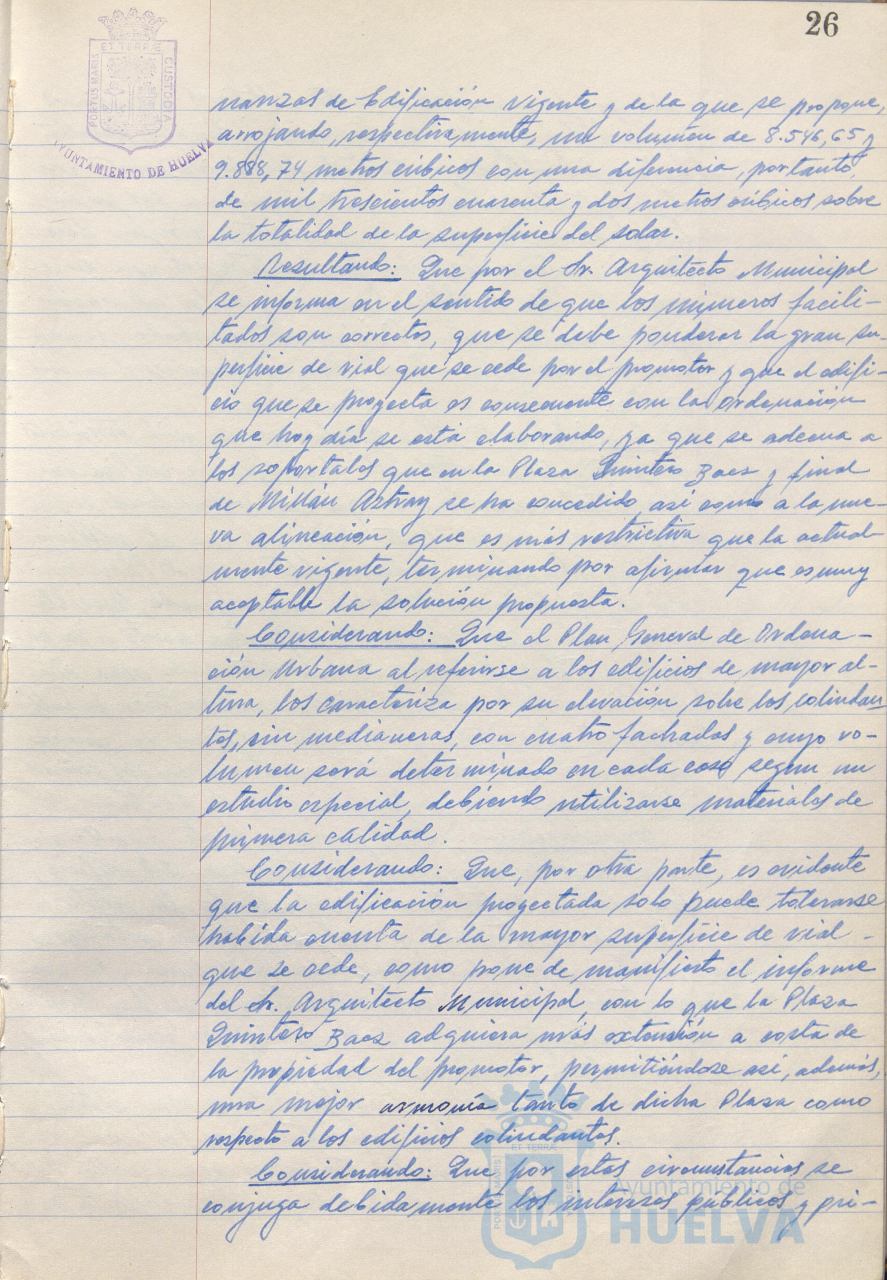 26
PORTUS MARIS ET TERRÆ CUSTODIA
AYUNTAMIENTO DE HUELVA
nanzas de Edificación vigente y de la que se propone,
arrojando, respectivamente, un volumen de 8.546,65 y
9.888,74 metros cúbicos con una diferencia, por tanto,
de mil trescientos cuarenta y dos metros cúbicos sobre
la totalidad de la superficie del solar.
Resultando: Que por el Sr. Arquitecto Municipal
se informa en el sentido de que los números facili-
tados son correctos, que se debe ponderar la gran su-
perficie de vial que se cede por el promotor y que el edifi-
cio que se proyecta es consecuente con la ordenación
que hoy día se está elaborando, ya que se adecua a
los soportales que en la Plaza Quintero Baez y final
de Millán Astray se ha concedido, así como a la nue-
va alineación, que es más restrictiva que la actual-
mente vigente, terminando por afirmar que es muy
aceptable la solución propuesta.
Considerando: Que el Plan General de Ordena-
ción Urbana al referirse a los edificios de mayor al-
tura, los caracteriza por su elevación sobre los colindan
tes, sin medianeras, con cuatro fachadas y cuyo vo-
lumen será determinado en cada caso segun un
estudio especial, debiendo utilizarse materiales de
primera calidad.
Considerando: Que, por otra parte, es evidente
que la edificación proyectada solo puede tolerarse
habida cuenta de la mayor superficie de vial -
que se cede, como pone de manifiesto el informe
del Sr. Arquitecto Municipal, con lo que la Plaza
Quintero Baez adquiera más extensión a costa de
la propiedad del promotor, permitiéndose así, además,
una mejor armonía tanto de dicha Plaza como
respecto a los edificios colindantes.
Considerando: Que por estas circunstancias, se
conjuga debidamente los intereses públicos y pri-
PORTUS MARIS ET TERRÆ CUSTODIA
Ayuntamiento de
HUELVA